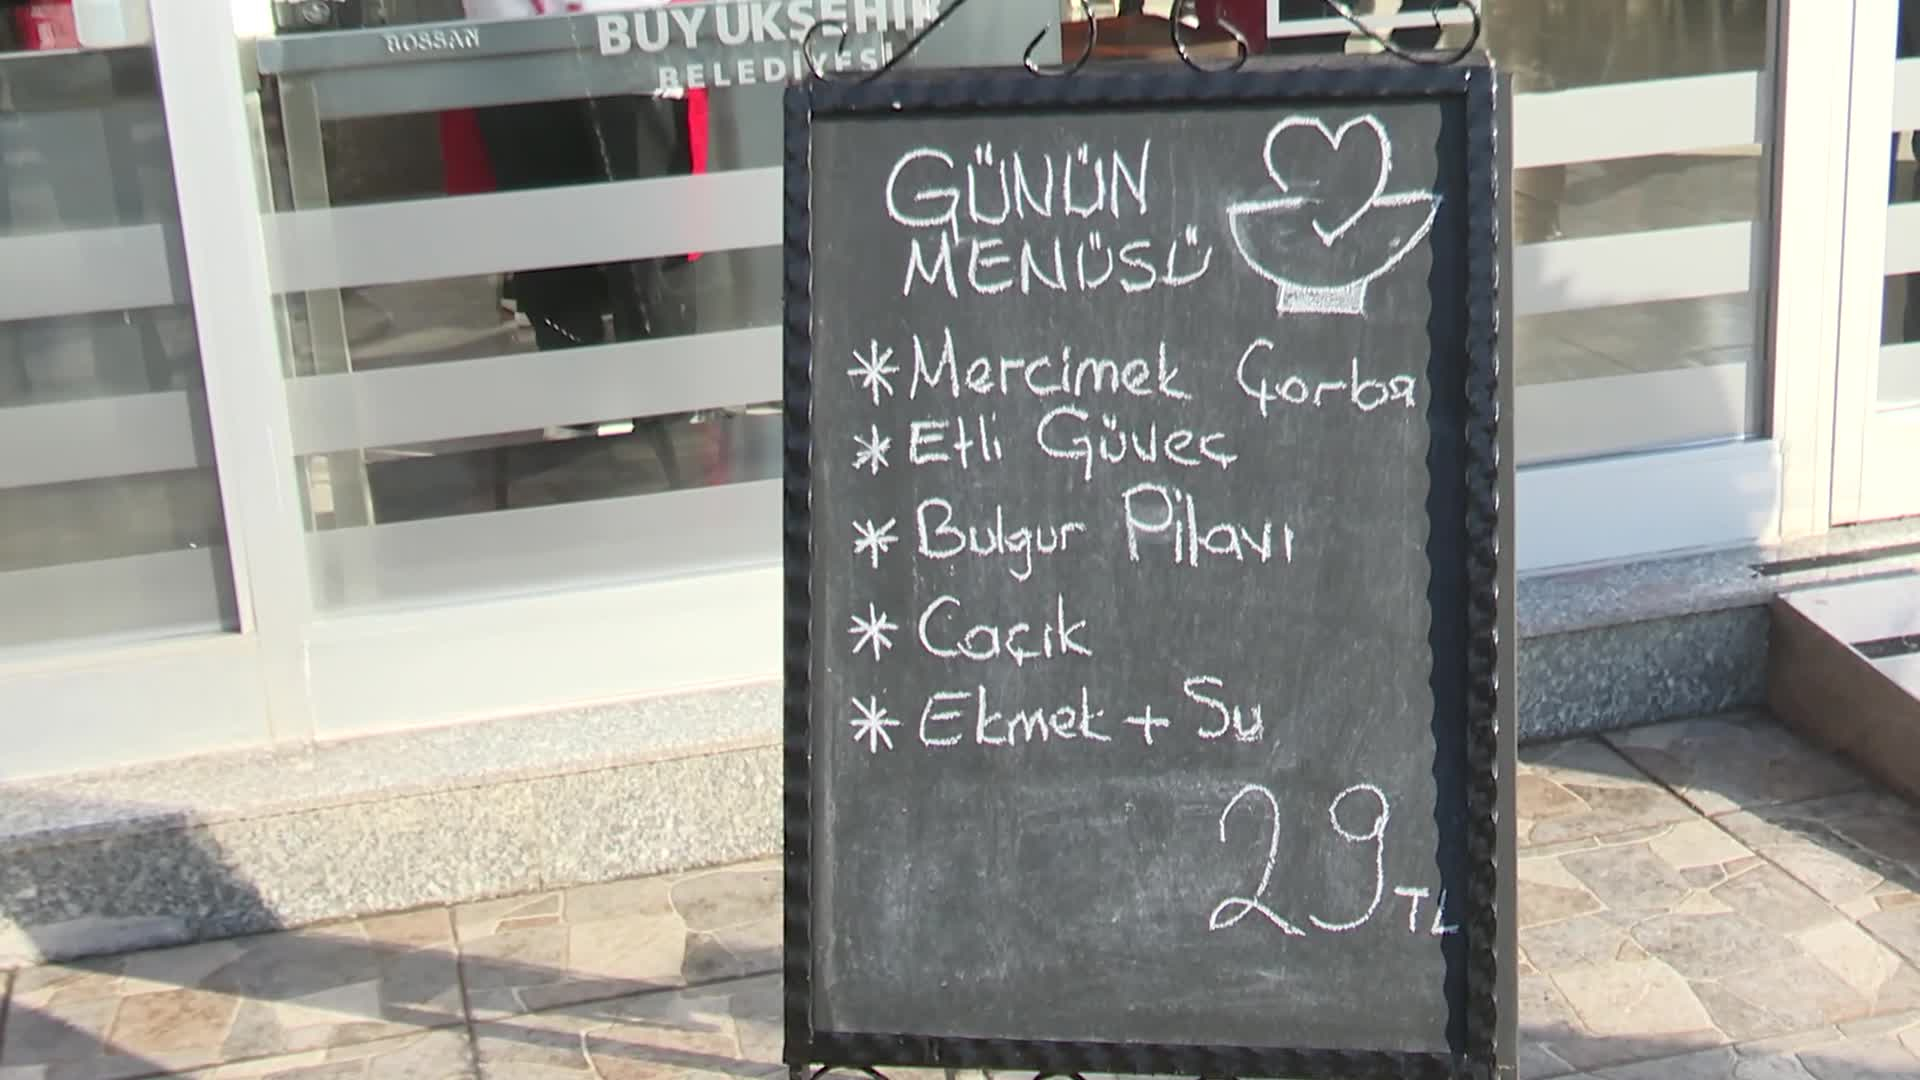 BOSSAN
BÜYÜKŞEHİR
BELEDİYESİ
GÜNÜN
MENÜSÜ
* Mercimek Çorba
* Etli Güveç
* Bulgur Pilavı
* Cacık
* Ekmek + Su
29 TL